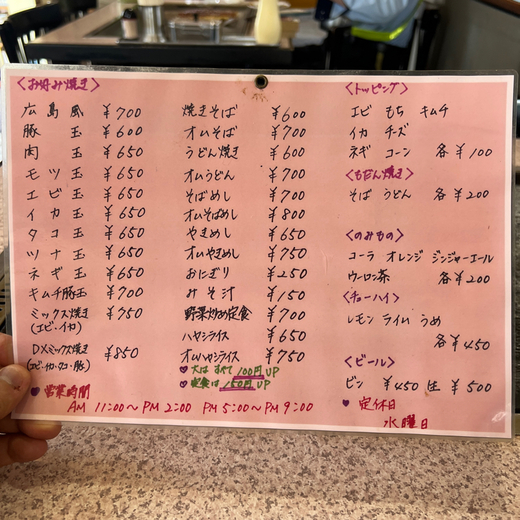 <お好み焼き>
広島風 ¥700
豚玉 ¥600
肉玉 ¥650
モツ玉 ¥650
エビ玉 ¥650
イカ玉 ¥650
タコ玉 ¥650
ツナ玉 ¥650
ネギ玉 ¥650
キムチ豚玉 ¥700
ミックス焼き ¥750
(エビ・イカ)
DXミックス焼き ¥850
(エビ・イカ・タコ・豚)
焼きそば ¥600
オムそば ¥700
うどん焼き ¥600
オムうどん ¥700
そばめし ¥700
オムそばめし ¥800
やきめし ¥650
オムやきめし ¥750
おにぎり ¥250
みそ汁 ¥150
野菜炒め定食 ¥700
ハヤシライス ¥650
オムハヤシライス ¥750
♥大は すべて 100円 UP
♥定食は 150円 UP
<トッピング>
エビ もち キムチ
イカ チーズ
ネギ コーン 各¥100
<もだん焼き>
そば うどん 各¥200
<のみもの>
コーラ オレンジ ジンジャーエール
ウーロン茶 各¥200
<チューハイ>
レモン ライム うめ
各¥450
<ビール>
ビン ¥450 生 ¥500
♥営業時間
AM 11:00～PM 2:00 PM 5:00～PM 9:00
♥定休日
水曜日